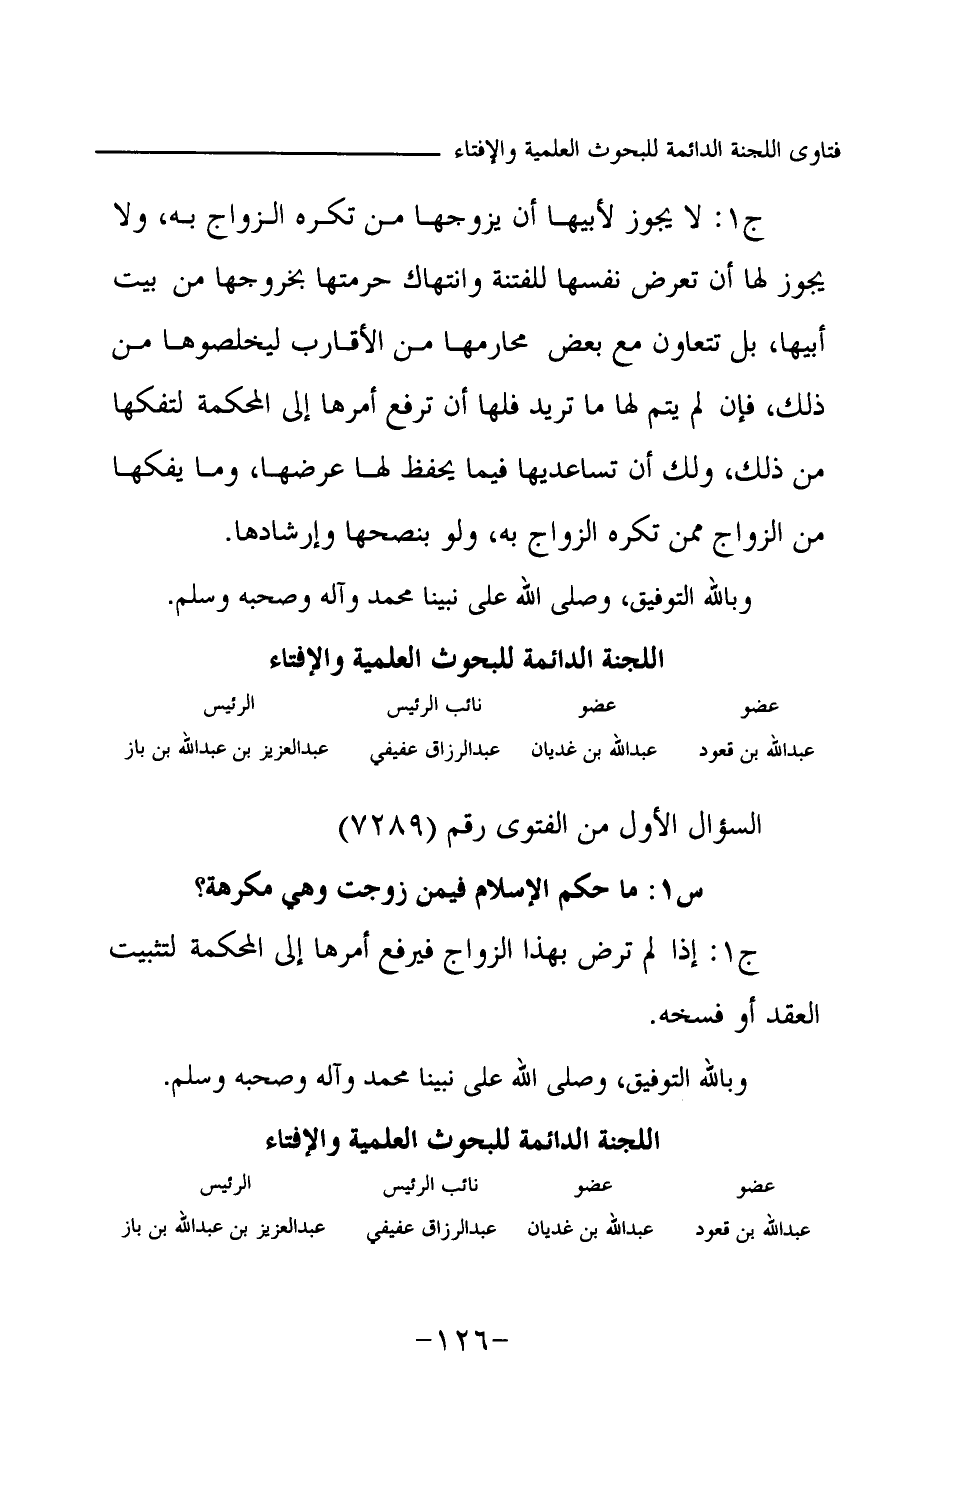 فتاوى اللجنة الدائمة للبحوث العلمية والإفتاء
ج١: لا يجوز لأبيها أن يزوجها من تكره الزواج به، ولا
يجوز لها أن تعرض نفسها للفتنة وانتهاك حرمتها بخروجها من بيت
أبيها، بل تتعاون مع بعض محارمها من الأقارب ليخلصوها من
ذلك، فإن لم يتم لها ما تريد فلها أن ترفع أمرها إلى المحكمة لتفكها
من ذلك، ولك أن تساعديها فيما يحفظ لها عرضها، وما يفكها
من الزواج ممن تكره الزواج به، ولو بنصحها وإرشادها.
وبالله التوفيق، وصلى الله على نبينا محمد وآله وصحبه وسلم.
اللجنة الدائمة للبحوث العلمية والإفتاء
عضو عضو نائب الرئيس الرئيس
عبدالله بن قعود عبدالله بن غديان عبدالرزاق عفيفي عبدالعزيز بن عبدالله بن باز
السؤال الأول من الفتوى رقم (٧٢٨٩)
س١: ما حكم الإسلام فيمن زوجت وهي مكرهة؟
ج١: إذا لم ترض بهذا الزواج فيرفع أمرها إلى المحكمة لتثبيت
العقد أو فسخه.
وبالله التوفيق، وصلى الله على نبينا محمد وآله وصحبه وسلم.
اللجنة الدائمة للبحوث العلمية والإفتاء
عضو عضو نائب الرئيس الرئيس
عبدالله بن قعود عبدالله بن غديان عبدالرزاق عفيفي عبدالعزيز بن عبدالله بن باز
-١٢٦-